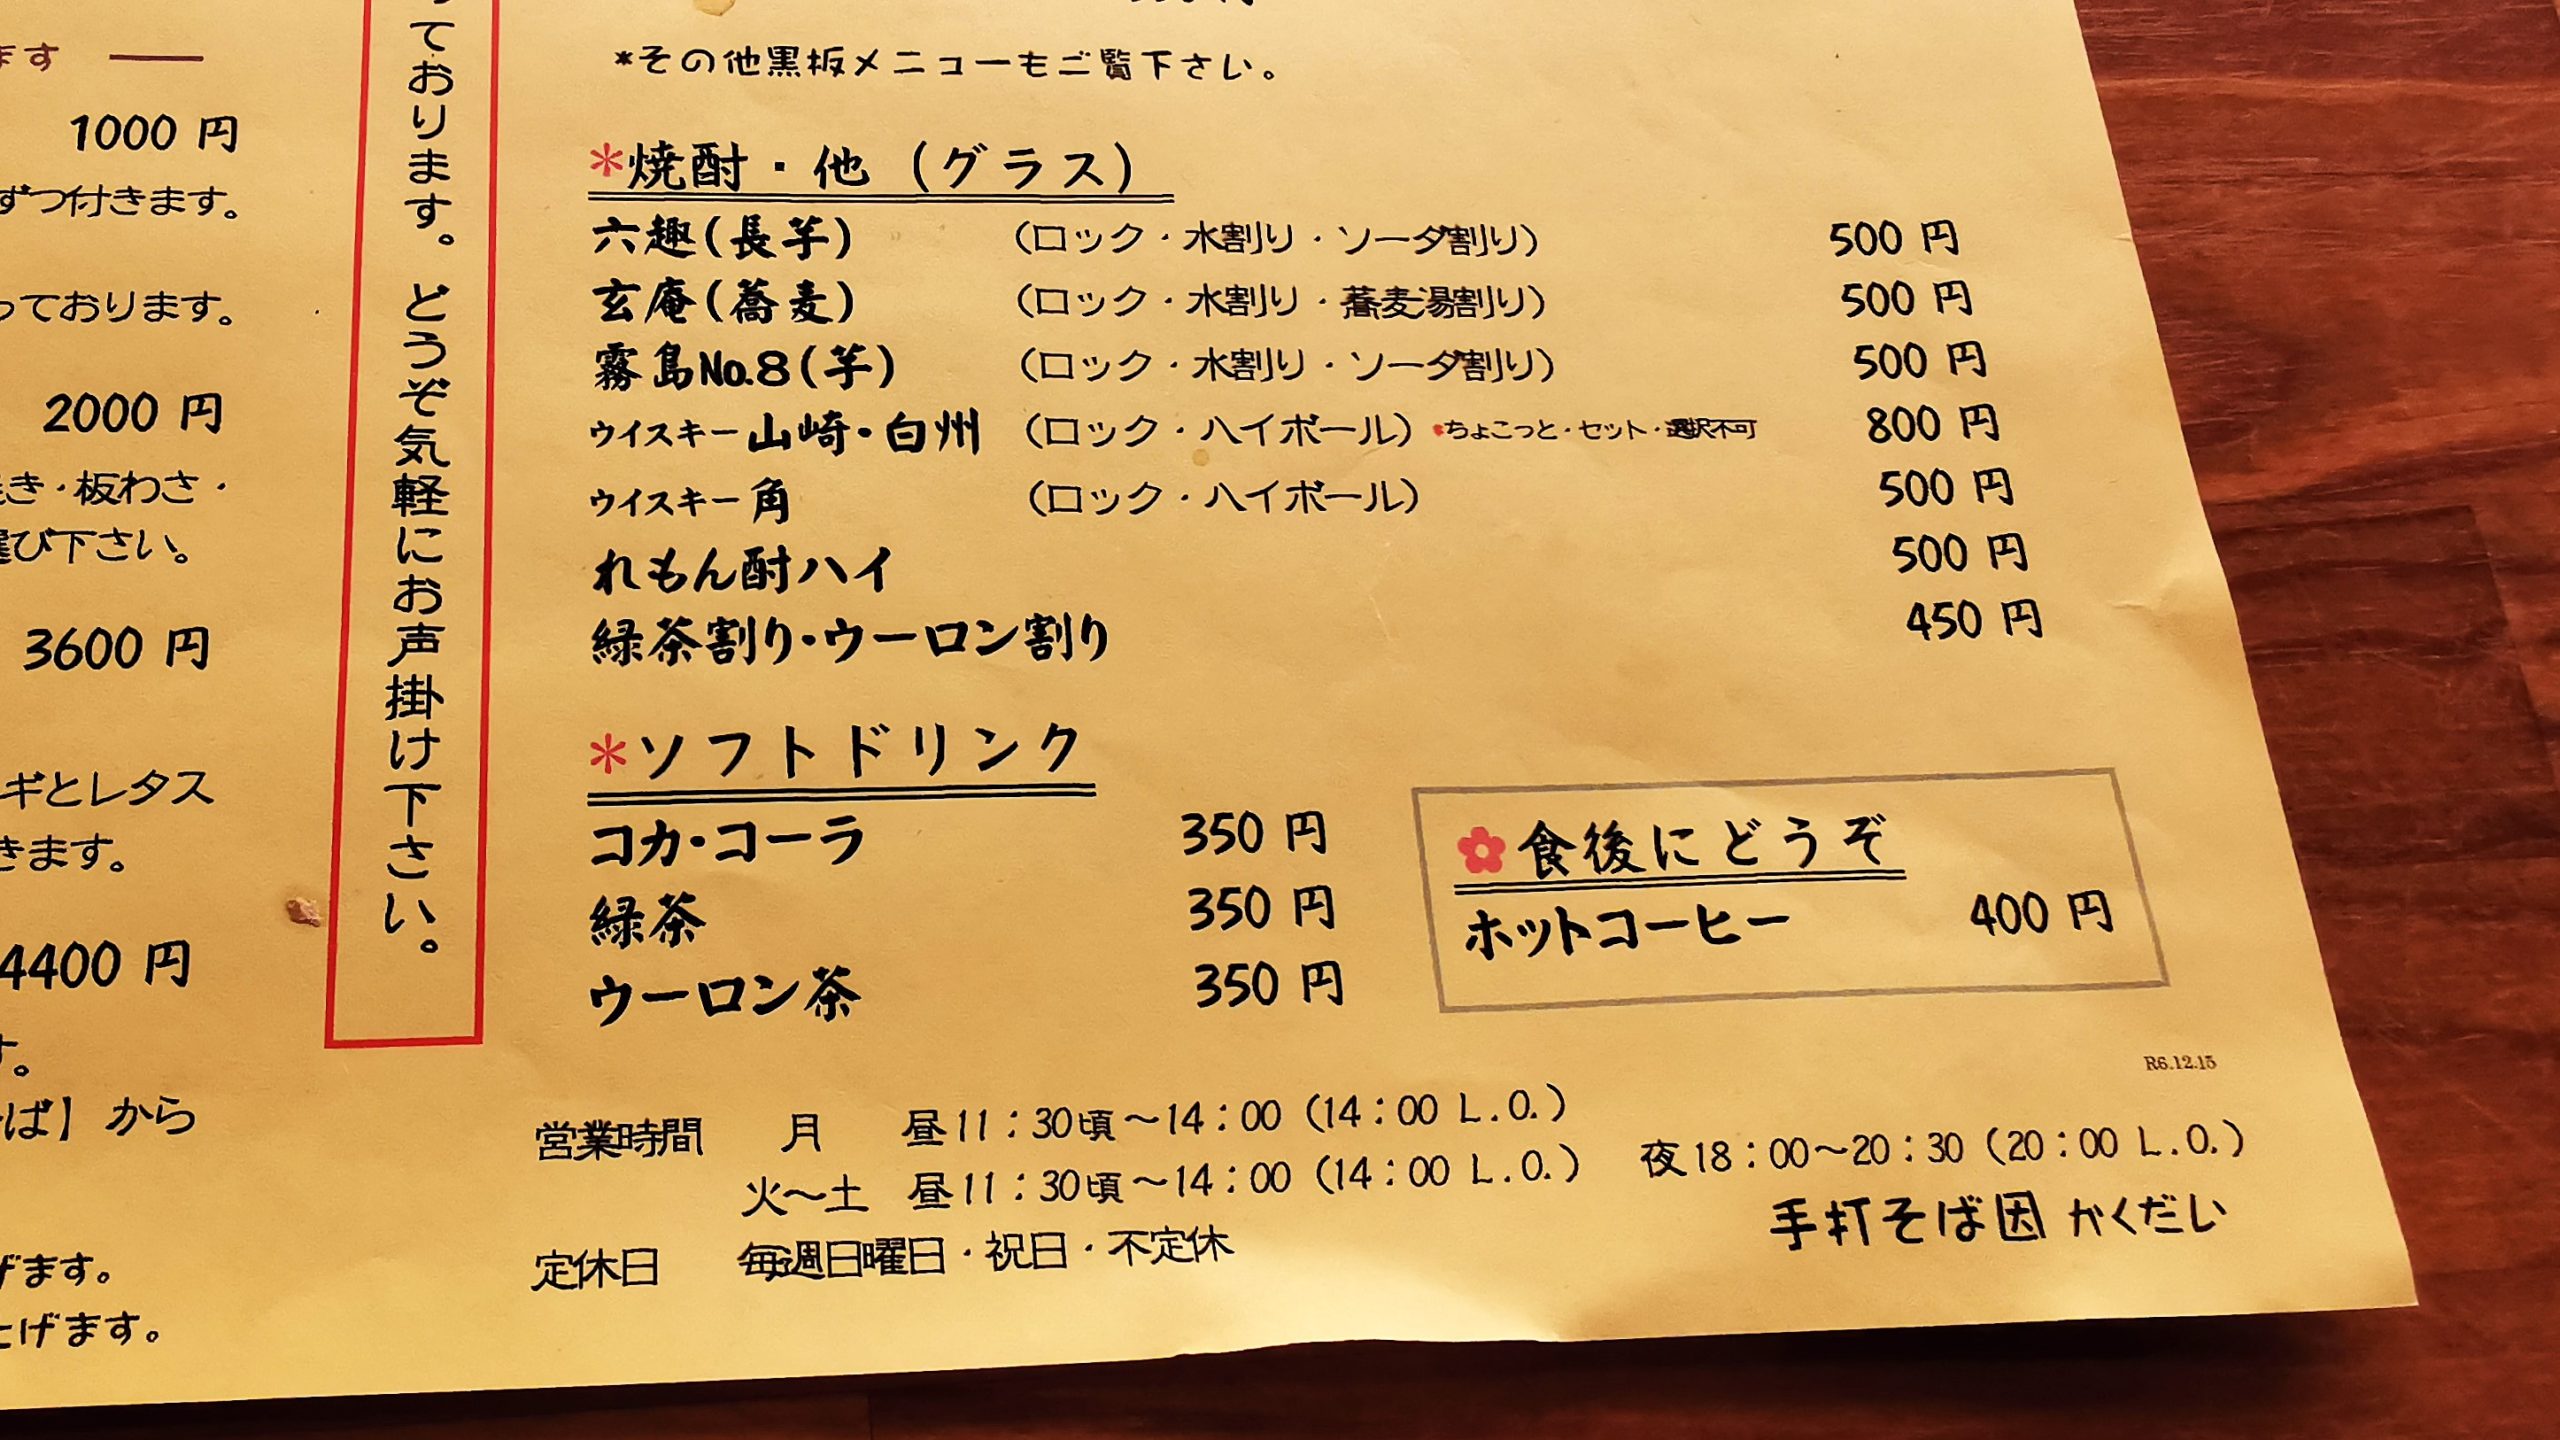 ます
1000 円
ずつ付きます。
っております。
2000 円
き・板わさ・
び下さい。
3600 円
ギとレタス
きます。
4400 円
す。
ば】から
げます。
上げます。
っております。どうぞ気軽にお声掛け下さい。
*その他黒板メニューもご覧下さい。
*焼酎・他（グラス）
六趣(長芋) （ロック・水割り・ソーダ割り） 500 円
玄庵(蕎麦) （ロック・水割り・蕎麦湯割り） 500 円
霧島No.8(芋) （ロック・水割り・ソーダ割り） 500 円
ウイスキー山崎・白州 （ロック・ハイボール）*ちょこっと・セット・選択不可 800 円
ウイスキー角 （ロック・ハイボール） 500 円
れもん酎ハイ 500 円
緑茶割り・ウーロン割り 450 円
*ソフトドリンク
コカ・コーラ 350 円
緑茶 350 円
ウーロン茶 350 円
食後にどうぞ
ホットコーヒー 400 円
R6.12.15
営業時間 月 昼11：30頃～14：00（14：00 L.O.）
火～土 昼11：30頃～14：00（14：00 L.O.） 夜18：00～20：30（20：00 L.O.）
定休日 毎週日曜日・祝日・不定休
手打そば因 かくだい